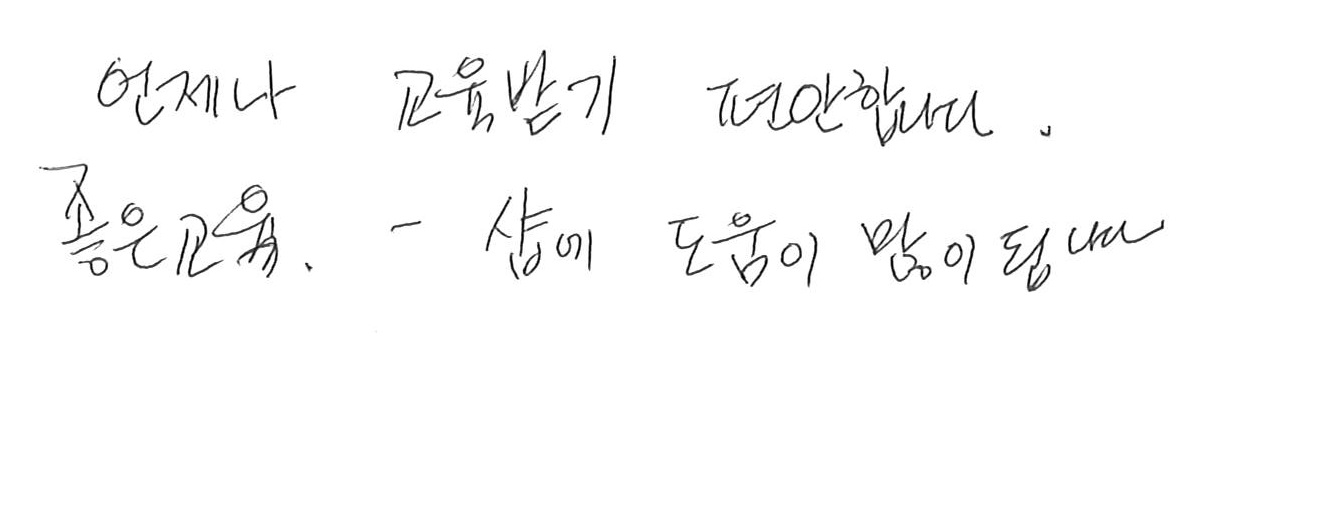 언제나 교육받기 편안합니다.
좋은교육. - 샵에 도움이 많이 됩니다